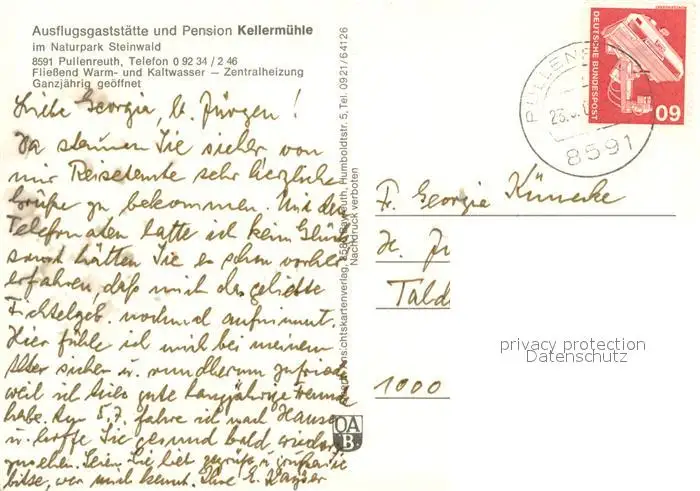 Ausflugsgaststätte und Pension Kellermühle
im Naturpark Steinwald
8591 Pullenreuth, Telefon 0 92 34 / 2 46
Fließend Warm- und Kaltwasser – Zentralheizung
Ganzjährig geöffnet
Liebe Georgia, lb. Jürgen!
Da staunen Sie sicher von
mir Reisetante sehr herzliche
Grüße zu bekommen. Mit den
Telefonaten hatte ich kein Glück
sonst hätten Sie es schon vorher
erfahren, daß mich das geliebte
Fichtelgeb. nochmal aufnimmt.
Hier fühle ich mich bei meinem
Alter sicher u. rundherum zufrieden
weil ich hier gute langjährige Freunde
habe. Am 5.7. fahre ich nach Hause
u. hoffe Sie gesund bald wieder
zusehen. Seien Sie lieb gegrüßt u. grüßen Sie
bitte, wer mich kennt. Ihre E. Kayser
Ansichtskartenverlag, 8580 Bayreuth, Humboldtstr. 5, Tel. 0921/64126
Nachdruck verboten
OA
B.
DEUTSCHE BUNDESPOST
60
8591
Fr. Georgia Künecke
1000
privacy protection
Datenschutz